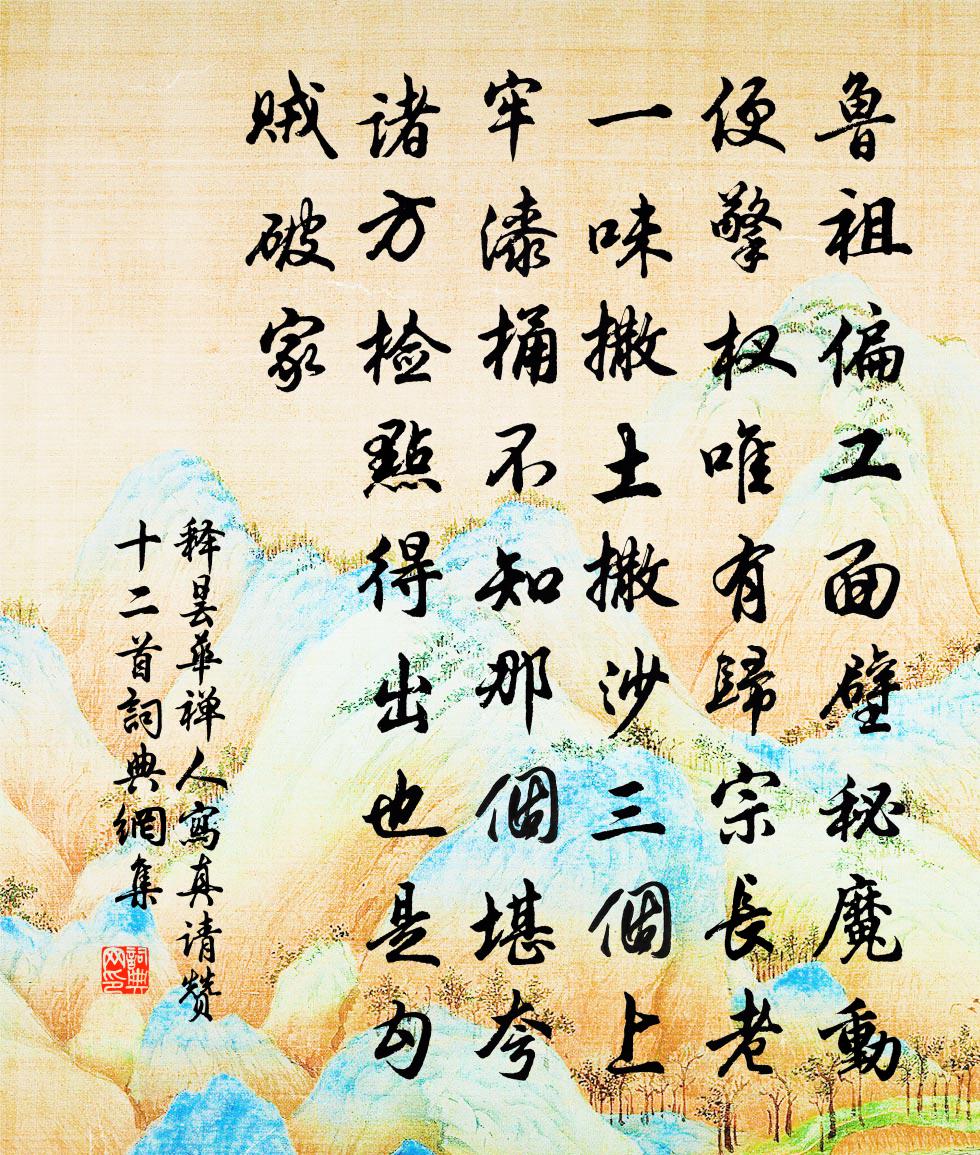 鲁祖偏工面壁秘魔動
便擎杈唯有歸宗長老
一味撒土撒沙三個上
牢漆桶不知那個堪夸
诸方检點得出也是勾
贼破家
释昙华禅人寫真请赞
十二首詞典網集
詞典